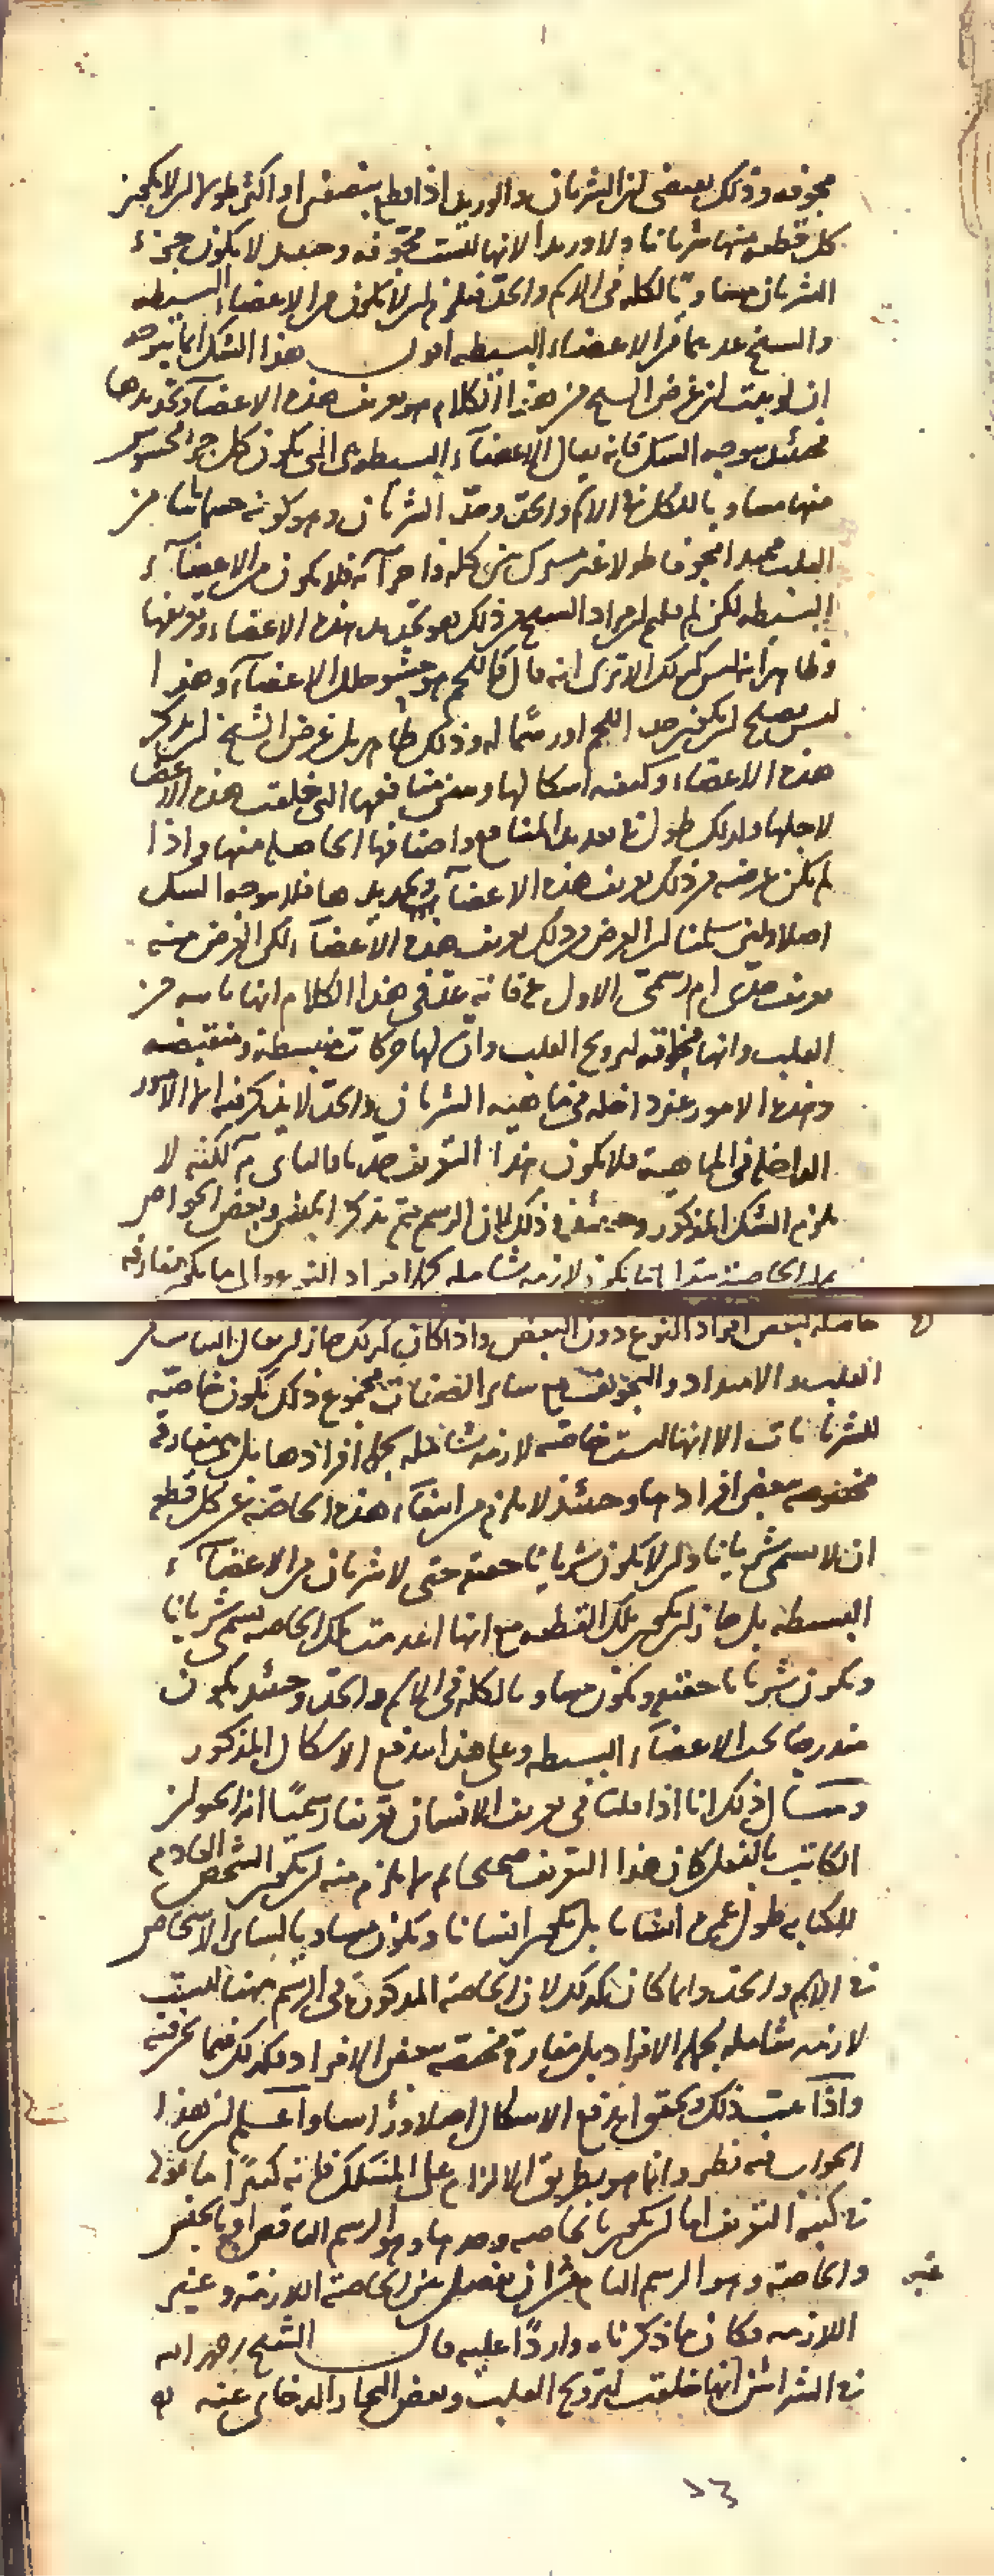 مجوفه وذلك يقتضى ان الشريان والوريد اذا قطع بنصفين او اكثر طولا ان لا يكون
كل قطعه منها شريانا ولا وريدا لانها ليست مجوفه وحينئذ لا يكون جزء
الشريان مساويا لكله فى الاسم والحد فيلزم ان لا يكون من الاعضاء البسيطه
والشيخ عدهما من الاعضاء البسيطه اقول هذا الشك انما يتوجه
ان لو ثبت ان غرض الشيخ من هذا الكلام هو تعريف هذه الاعضآء وتحديدها
فحينئذ يتوجه الشك فانه يقال الاعضآء البسيطه هى التى يكون كل جزء محسوس
منها مساويا للكل فى الاسم والحد وحد الشريان وهو كونه جسما نابتا من
القلب ممتدا مجوفا طولا غير مشترك بين كله واجزآئه فلا يكون من الاعضآء
البسيطه لكن لم قلتم ان مراد الشيخ من ذلك هو تحديد هذه الاعضاء وتعريفها
وظاهر انه ليس كذلك الا ترى انه قال فى اللحم هو حشو خلل الاعضآء وهذا
ليس يصلح ان يكون حد اللحم او رسما له وذلك ظاهر بل غرض الشيخ ان يذكر
هذه الاعضاء وكيفيه اشكالها وبعض منافعها التى خلقت هذه الاعضا
لاجلها ولذلك طول فى تعديد المنافع واصنافها الحاصله منها واذا
لم يكن غرضه من ذلك تعريف هذه الاعضآء وتحديدها فلا يتوجه الشك
اصلا ولئن سلمنا ان الغرض من ذلك تعريف هذه الاعضآء لكن الغرض منه
تعريف حدى ام رسمى الاول ع فانه عد فى هذا الكلام انها نابته من
القلب وانها مخلوقه لترويح القلب وان لها حركات منبسطه ومنقبضه
وهذه الامور غير داخله فى ماهيه الشريان والحد لا يذكر فيه الا الامور
الداخله فى الماهية فلا يكون هذا التعريف حديا والثانى م لكنه لا
يلزم الشك المذكور وحينئذ وذلك لان الرسم يتم بذكر الجنس وبعض الخواص
ثم الخاصة منها ما يكون لازمه شامله لكل افراد النوع والى ما يكون مفارقه
حاصله لبعض افراد النوع دون البعض واذا كان كذلك جاز ان يقال النبات من
القلب والامتداد والتجويف مع سائر الصفات مجموع ذلك يكون خاصيه
للشريانات الا انها ليست خاصه لازمه شامله لجمله افرادها بل هى مفارقه
مخصوصه ببعض افرادها وحينئذ لا يلزم من انتفاء هذه الخاصة عن كل قطعه
ان لا يسمى شريانا وان لا يكون شريانا حقيقه حتى لا شريان من الاعضآء
البسيطه بل جاز ان يكون تلك القطعه مع انها اعدمت تلك الخاصه يسمى شريانا
ويكون شريانا حقيقه ويكون مساويا لكله فى الاسم والحد وحينئذ يكون
مندرجا تحت الاعضآء البسيطه وعلى هذا اندفع الاشكال المذكور
ومثال ذلك انا اذا قلنا فى تعريف الانسان تعريفا رسميًا انه الحيوان
الكاتب بالفعل كان هذا التعريف صحيحا ولم يلزم منه ان يكون الشخص العادم
للكتابه طول عمره انسانا بل يكون انسانا ويكون مساويا لسائر الاشخاص
فى الاسم والحد وانما كان كذلك لان الخاصة المذكوره فى الرسم ههنا ليست
لازمه شامله لجمله الافراد بل مفارقة مختصه ببعض الافراد فكذلك فيما نحن فيه
واذا ثبت ذلك وتحقق اندفع الاشكال اصلا وراسا واعلم ان هذا
الجواب فيه نظر وانما هو بطريق الالزام على المتشكك فانه كثيرًا ما يقول
فى كتبه التعريف اما ان يكون بالخاصه وحدها وهو الرسم الناقص او بالجنس
والخاصة وهو الرسم التام من غير ان يفصل بين الخاصة اللازمة وغير
غير
اللازمه فكان ما ذكرناه واردًا عليه قال الشيخ رحمه الله
فى الشرائين انها خلقت لترويح القلب ونفض البخار الدخانى عنه